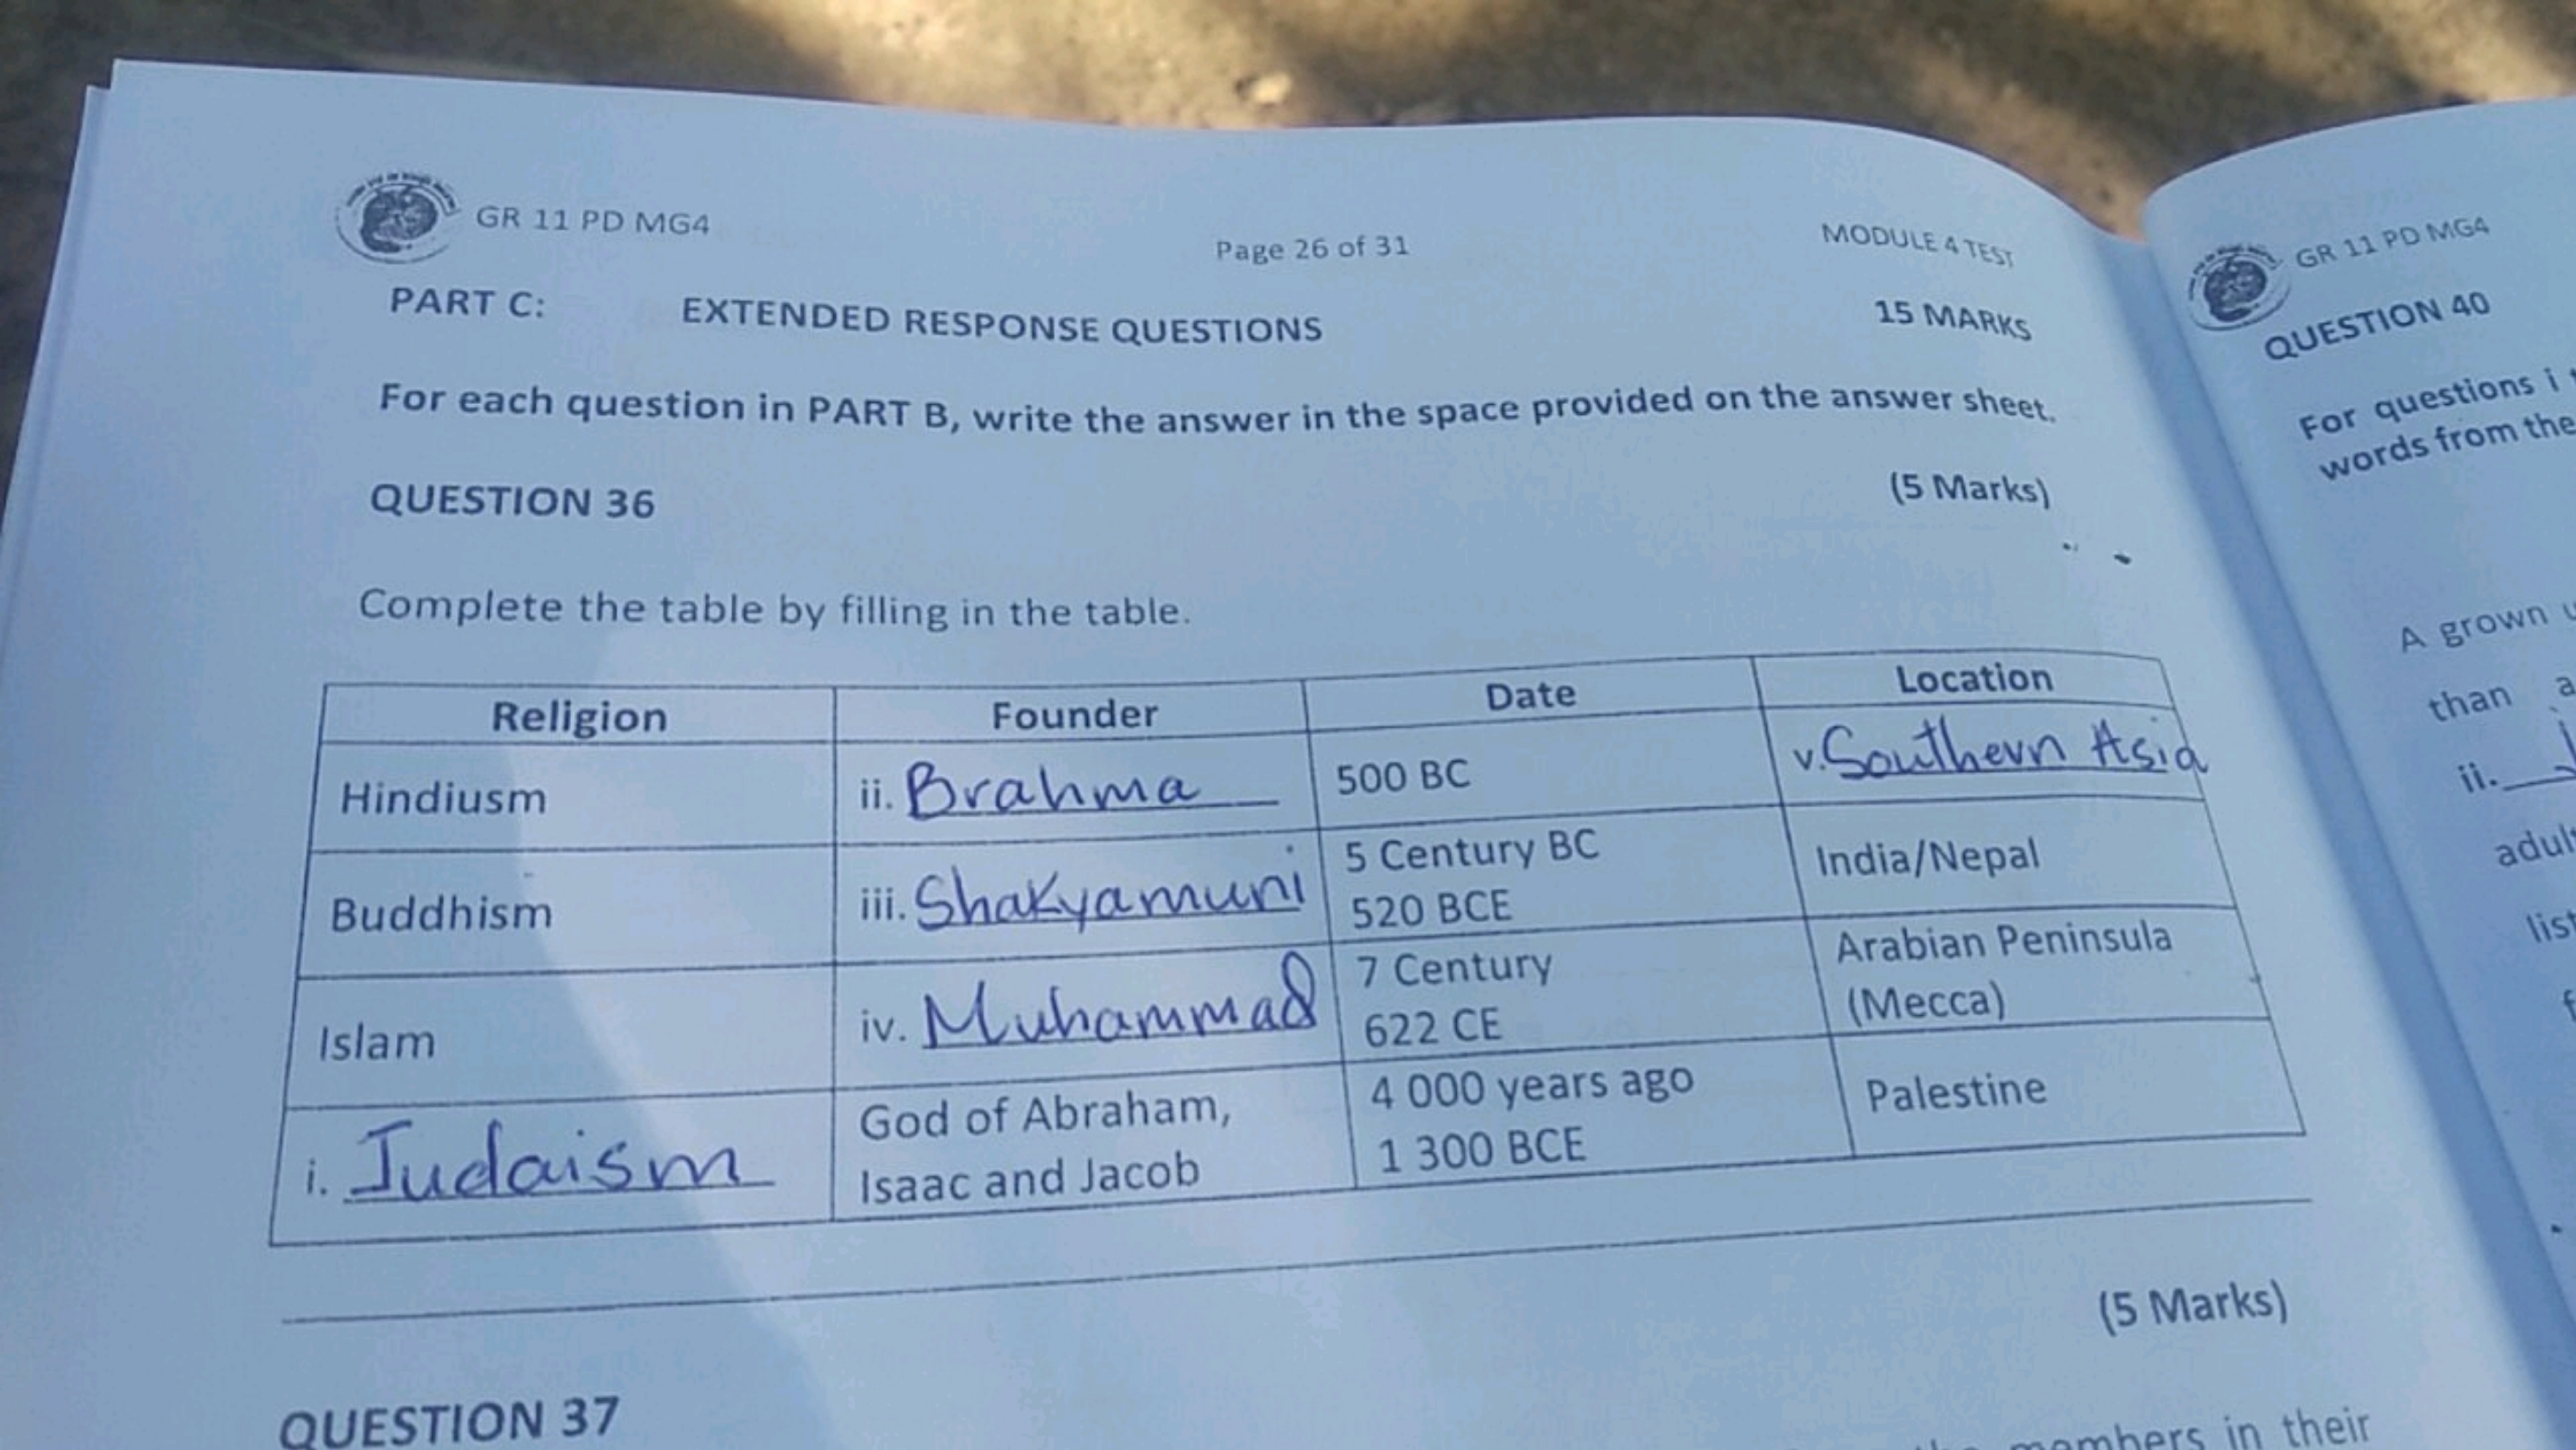 GR 11 PD MG4
Page 26 of 31
MODULE 4 TEST
PART C: EXTENDED RESPONSE QUESTIONS 15 MARKS
For each question in PART B, write the answer in the space provided on the answer sheet.
QUESTION 36 (5 Marks)
Complete the table by filling in the table.
Religion Founder Date Location
Hindiusm ii. Brahma 500 BC v. Southern Asia
Buddhism iii. Shakyamuni 5 Century BC India/Nepal
520 BCE
Islam iv. Muhammad 7 Century Arabian Peninsula
622 CE (Mecca)
i. Judaism God of Abraham, 4 000 years ago Palestine
Isaac and Jacob 1 300 BCE
(5 Marks)
QUESTION 37
members in their
GR 11 PD MG4
QUESTION 40
For questions i
words from the
A grown
than a
ii.